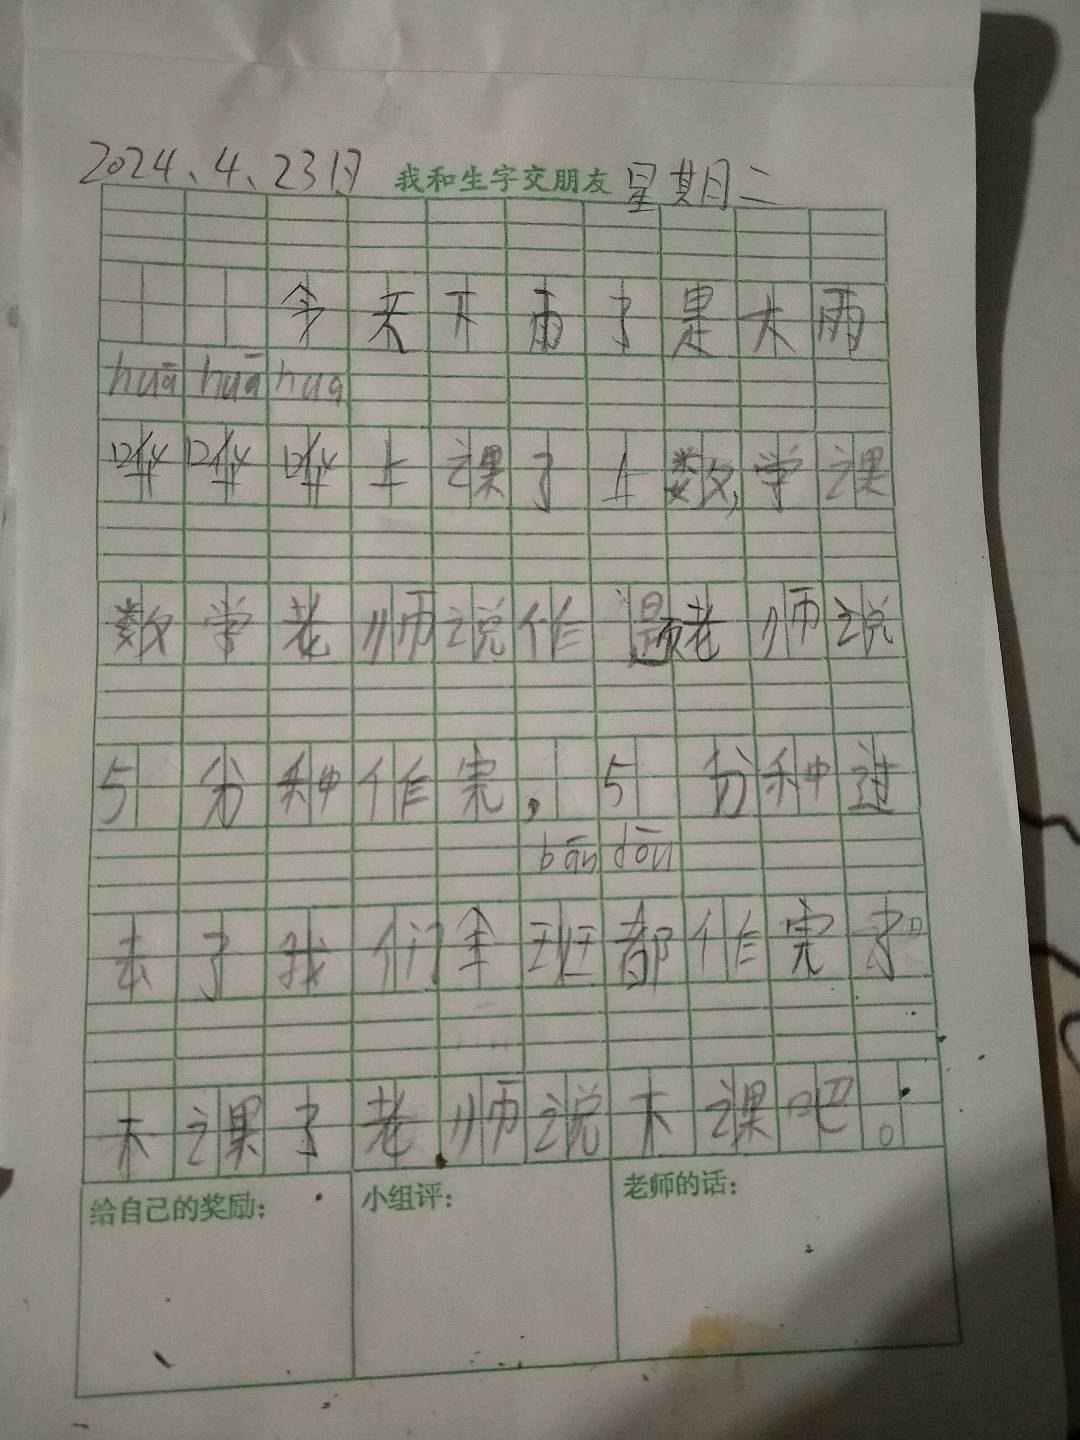 2024、4、23日 我和生字交朋友 星期二
今天下雨了是大雨
huā huā hua
哗哗哗上课了上数学课
数学老师说作题老师说
5分种作完，5分种过
bān dōu
去了我们全班都作完了
下课了老师说下课吧。
给自己的奖励： 小组评： 老师的话：